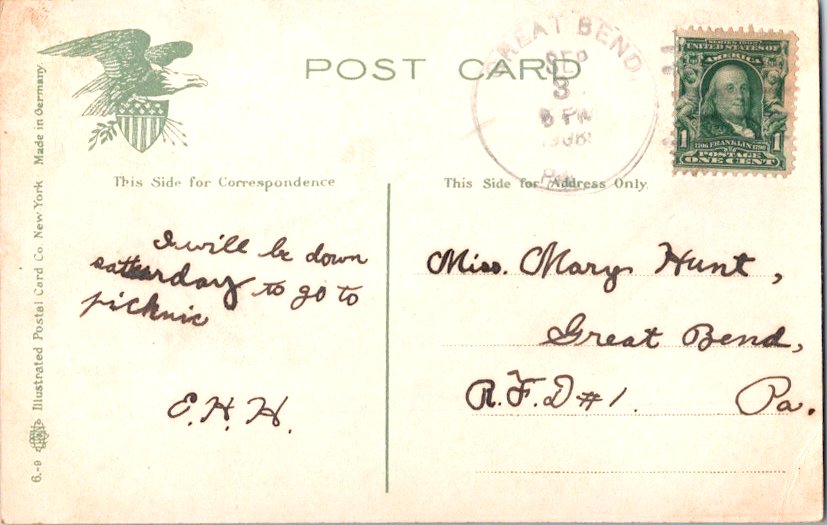 POST CARD
GREAT BEND,
SEP
3
6 PM
1908
PA.
SERIES 1902
UNITED STATES OF
AMERICA
1706 FRANKLIN 1790
1 1
POSTAGE
ONE CENT
This Side for Correspondence
This Side for Address Only.
I will be down
satturday to go to
picknic
E. H. H.
Miss. Mary Hunt,
Great Bend,
R.F.D #1. Pa.
6.-9 Illustrated Postal Card Co. New York Made in Germany.